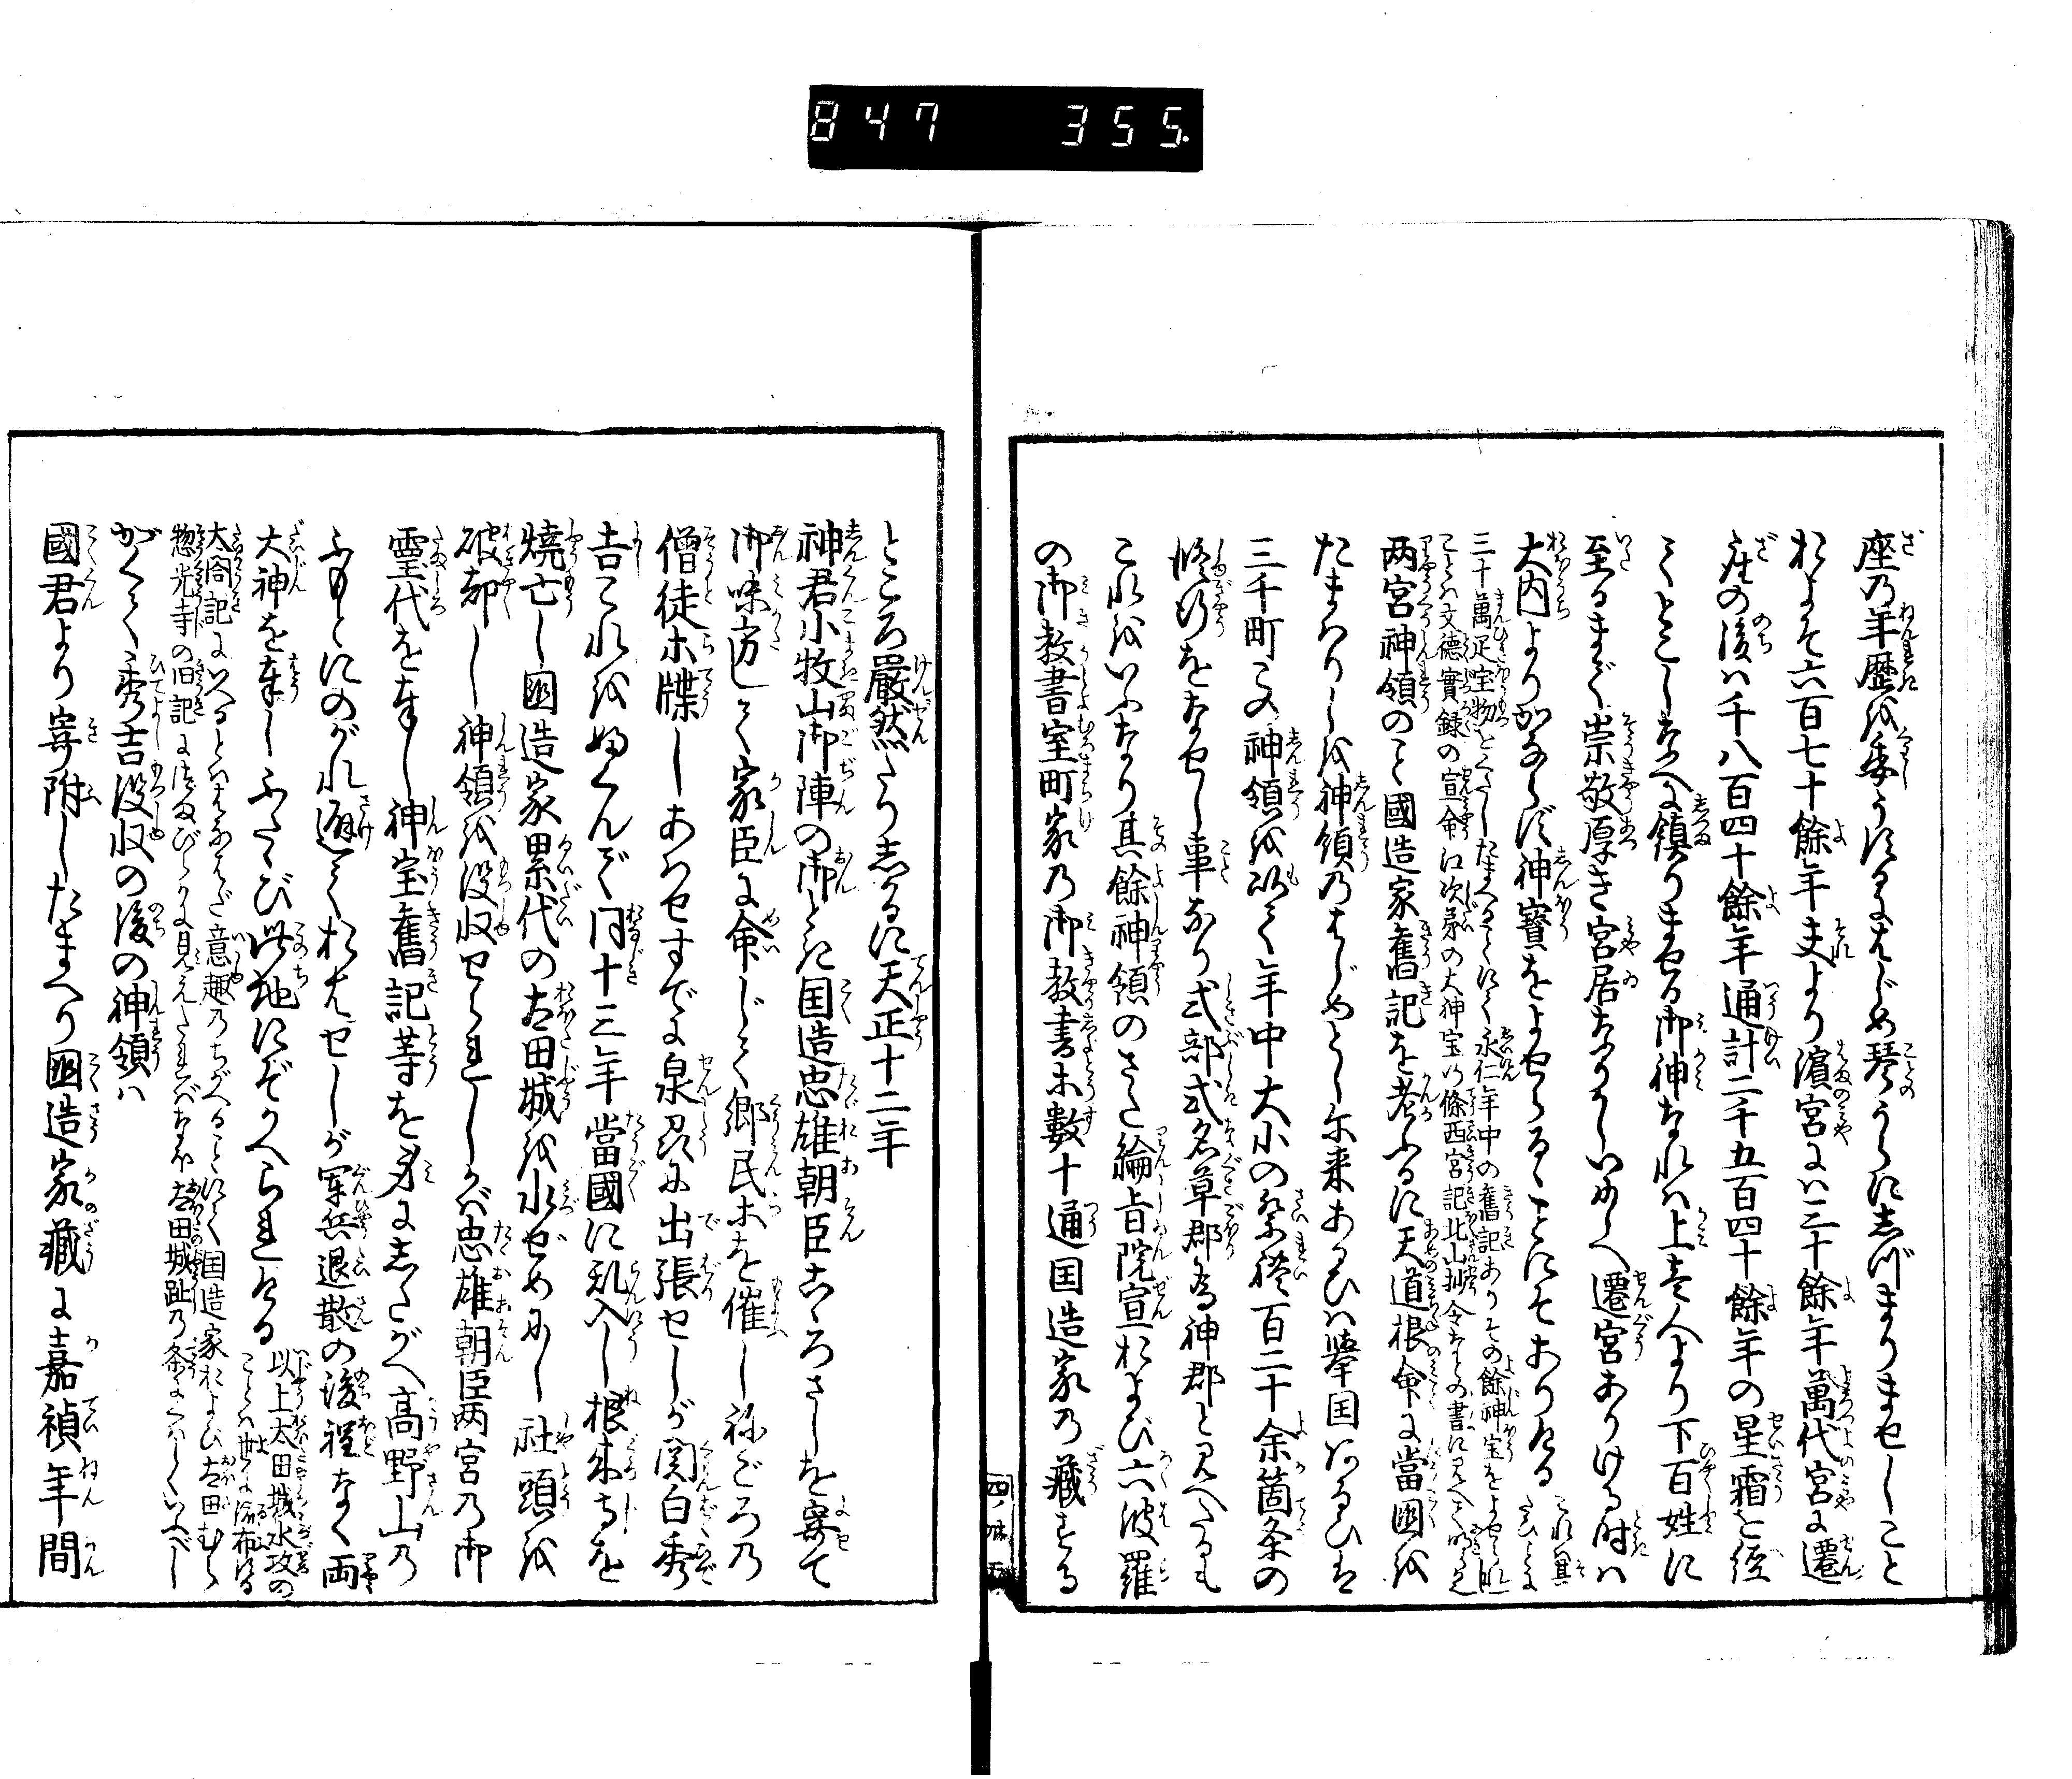 847 355
座乃年歴を委うするにはじめ琴うらにしづまりませしこと
およそ六百七十餘年夫より濵宮に三十餘年萬代宮に遷
座の後ハ千八百四十餘年通計二千五百四十餘年の星霜を経
てとこしなへに鎮りませる御神なれハ上壱人より下百姓に
至るまで崇敬厚き宮居なりしいにしへ遷宮ありける時ハ
大内よりかならず神寳をよせらるゝことにてありける
これハ其たひことに
三十萬疋宝物をくたしたまへることにて永仁年中の舊記ありその餘神宝をよせられし
ことハ文德實録の宣命江次苐の大神宝の條西宮記北山抄令なとの書に見えて明らか也
両宮神領のこと國造家舊記を考ふるに天道根命に當國を
たまわりしを神領乃はじめとし尓来あるひハ擧国あるひは
三千町この神領を以て年中大小の祭禮百二十余箇条の
修行をなせし事あり式部式名草郡為神郡と見へたるも
これをいふなり其餘神領のさた綸旨院宣および六波羅
の御教書室町家乃御教書ホ數十通国造家乃藏する
四ノ
ところ嚴然たりしかるに天正十二年
神君小牧山御陣の御とき国造忠雄朝臣こゝろさしを寄て
御味方して家臣に命じて郷民ホを催し祢ごろの
僧徒ホ牒しあわせすでに泉刕に出張せしが関白秀
吉これをふくんで同十三年當國に乱入し根来寺を
燒亡し國造家累代の太田城を水ぜめにし社頭を
破却し神領を没収せられしかば忠雄朝臣両宮乃御
霊代を奉し神宝舊記等を身にしたがへ髙野山乃
ふもとにのがれ避ておはせしが軍兵退散の後程なく両
大神を奉しふたゝび此地にぞかへられける
以上太田城水攻の
ことハ世に流布する
太閤記にいへるとハはなはだ意趣乃ちがへることにて国造家および太田むら
惣光寺の旧記につまびらかに見えたれバなほ太田城趾乃条にくハしくいふべし
かくて秀吉没収の後の神領ハ
國君より寄附したまへり國造家藏に嘉禎年間